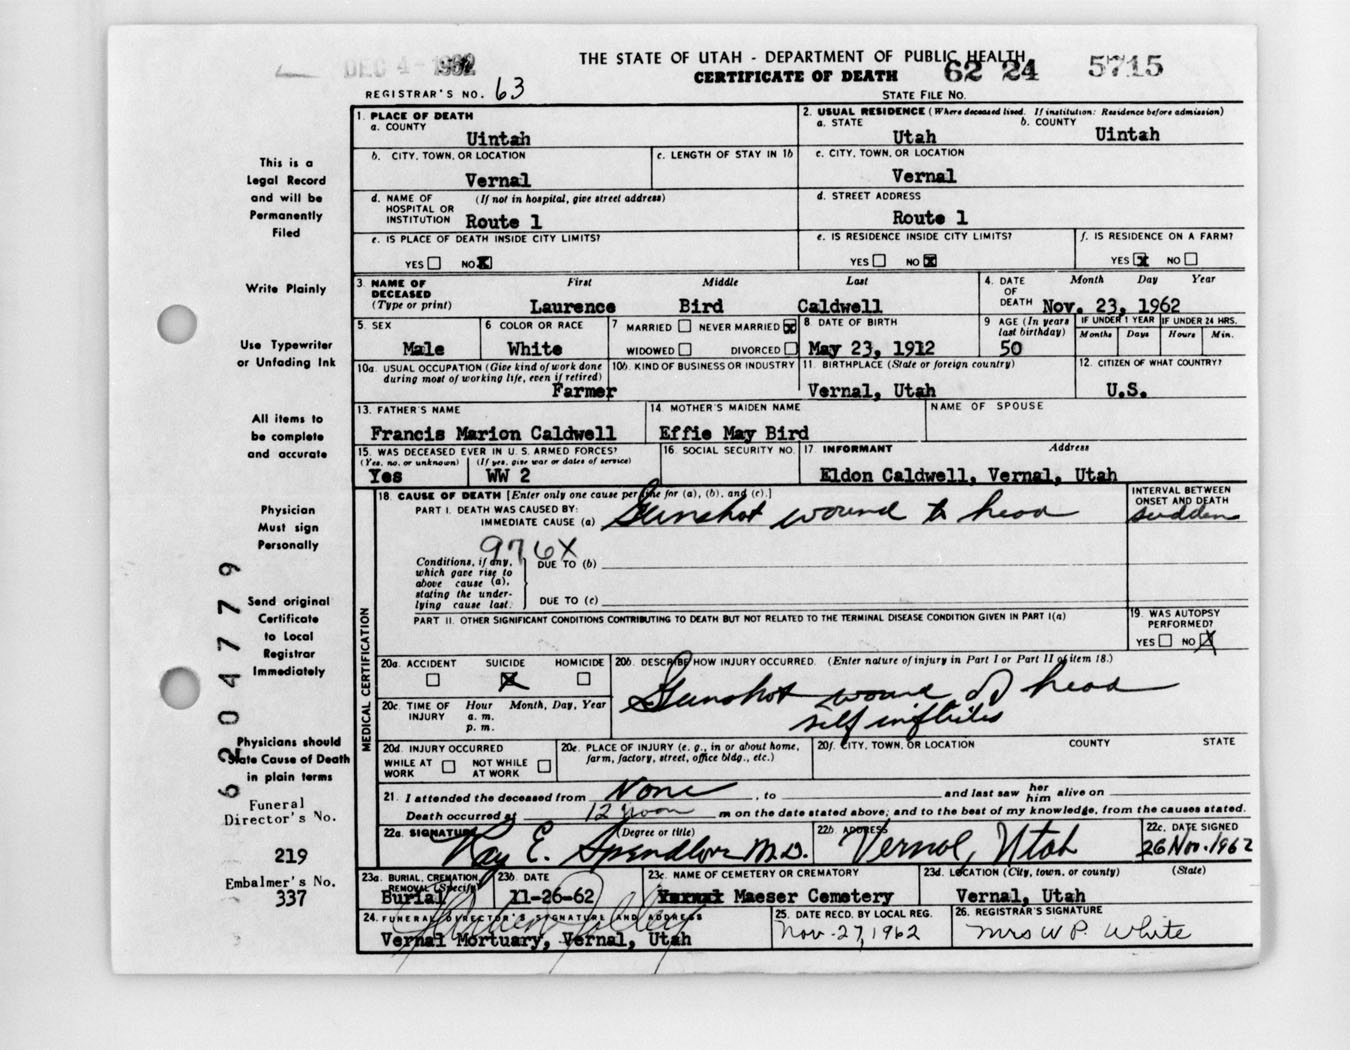 DEC 4 - 1962
THE STATE OF UTAH - DEPARTMENT OF PUBLIC HEALTH
CERTIFICATE OF DEATH
62 24 5715
REGISTRAR'S NO. 63
STATE FILE NO.
This is a
Legal Record
and will be
Permanently
Filed
Write Plainly
Use Typewriter
or Unfading Ink
All items to
be complete
and accurate
Physician
Must sign
Personally
Send original
Certificate
to Local
Registrar
Immediately
Physicians should
State Cause of Death
in plain terms
Funeral
Director's No.
219
Embalmer's No.
337
6204779
1. PLACE OF DEATH
a. COUNTY
Uintah
2. USUAL RESIDENCE (Where deceased lived. If institution: Residence before admission)
a. STATE b. COUNTY
Utah Uintah
b. CITY, TOWN, OR LOCATION
Vernal
c. LENGTH OF STAY IN 1b
c. CITY, TOWN, OR LOCATION
Vernal
d. NAME OF (If not in hospital, give street address)
HOSPITAL OR
INSTITUTION Route 1
d. STREET ADDRESS
Route 1
e. IS PLACE OF DEATH INSIDE CITY LIMITS?
YES NO X
e. IS RESIDENCE INSIDE CITY LIMITS?
YES NO X
f. IS RESIDENCE ON A FARM?
YES X NO
3. NAME OF First Middle Last
DECEASED
(Type or print) Laurence Bird Caldwell
4. DATE Month Day Year
OF
DEATH Nov. 23, 1962
5. SEX
Male
6 COLOR OR RACE
White
7 MARRIED NEVER MARRIED X
WIDOWED DIVORCED
8 DATE OF BIRTH
May 23, 1912
9 AGE (In years
last birthday)
50
IF UNDER 1 YEAR
Months Days
IF UNDER 24 HRS.
Hours Min.
10a. USUAL OCCUPATION (Give kind of work done
during most of working life, even if retired)
Farmer
10b. KIND OF BUSINESS OR INDUSTRY
11. BIRTHPLACE (State or foreign country)
Vernal, Utah
12. CITIZEN OF WHAT COUNTRY?
U.S.
13. FATHER'S NAME
Francis Marion Caldwell
14. MOTHER'S MAIDEN NAME
Effie May Bird
NAME OF SPOUSE
15. WAS DECEASED EVER IN U.S. ARMED FORCES?
(Yes, no, or unknown) (If yes, give war or dates of service)
Yes WW 2
16. SOCIAL SECURITY NO.
17. INFORMANT Address
Eldon Caldwell, Vernal, Utah
MEDICAL CERTIFICATION
18. CAUSE OF DEATH [Enter only one cause per line for (a), (b), and (c).]
PART I. DEATH WAS CAUSED BY:
IMMEDIATE CAUSE (a) Gunshot wound to head
INTERVAL BETWEEN
ONSET AND DEATH
sudden
976X
Conditions, if any,
which gave rise to
above cause (a),
stating the under-
lying cause last.
DUE TO (b)
DUE TO (c)
PART II. OTHER SIGNIFICANT CONDITIONS CONTRIBUTING TO DEATH BUT NOT RELATED TO THE TERMINAL DISEASE CONDITION GIVEN IN PART I(a)
19. WAS AUTOPSY
PERFORMED?
YES NO X
20a. ACCIDENT SUICIDE HOMICIDE
X
20b. DESCRIBE HOW INJURY OCCURRED. (Enter nature of injury in Part I or Part II of item 18.)
Gunshot wound of head
self inflicted
20c. TIME OF Hour Month, Day, Year
INJURY a. m.
p. m.
20d. INJURY OCCURRED
WHILE AT WORK NOT WHILE AT WORK
20e. PLACE OF INJURY (e. g., in or about home,
farm, factory, street, office bldg., etc.)
20f. CITY, TOWN, OR LOCATION COUNTY STATE
21. I attended the deceased from None, to and last saw her him alive on
Death occurred at 12 noon m on the date stated above; and to the best of my knowledge, from the causes stated.
22a. SIGNATURE (Degree or title)
Ray E. Spendlove M.D.
22b. ADDRESS
Vernal, Utah
22c. DATE SIGNED
26 Nov. 1962
23a. BURIAL, CREMATION,
REMOVAL (Specify)
Burial
23b. DATE
11-26-62
23c. NAME OF CEMETERY OR CREMATORY
Maeser Cemetery
23d. LOCATION (City, town, or county) (State)
Vernal, Utah
24. FUNERAL DIRECTOR'S SIGNATURE AND ADDRESS
Vernal Mortuary, Vernal, Utah
25. DATE RECD. BY LOCAL REG.
Nov-27, 1962
26. REGISTRAR'S SIGNATURE
Mrs W P. White